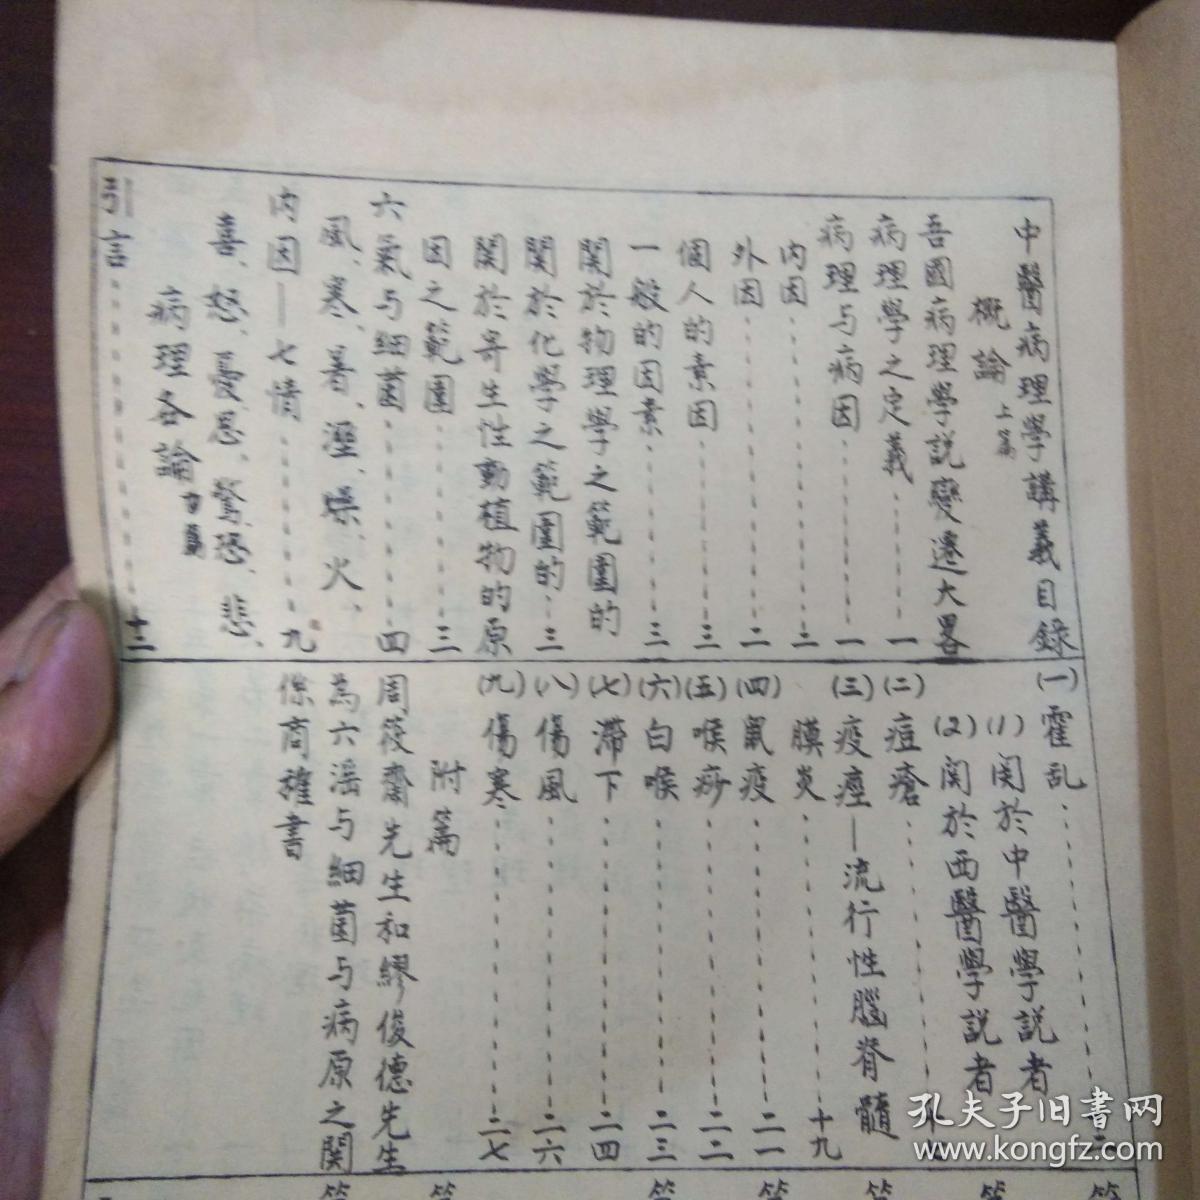 中醫病理學講義目錄
概論 上篇
吾國病理學説變遷大畧
病理學之定義 一
病理与病因 一
内因 二
外因 二
個人的素因 三
一般的因素 三
関於物理學之範圍的
関於化學之範圍的 三
関於寄生性動植物的原
因之範圍 三
六氣与細菌 四
風、寒、暑、溼、燥、火、
内因—七情 九
喜、怒、憂、思、驚、恐、悲、
病理各論
引言 十二
(一)霍乱
(1)関於中醫學説者
(2)関於西醫學説者
(二)痘瘡
(三)疫痙—流行性腦脊髓
膜炎 十九
(四)鼠疫 二一
(五)喉痧 二二
(六)白喉 二三
(七)滯下 二四
(八)傷風 二六
(九)傷寒 二七
附篇
周筱齋先生和繆俊德先生
為六淫与細菌与病原之関
係商搉書
第
第
第
第
第
第
第
孔夫子旧書网
www.kongfz.com